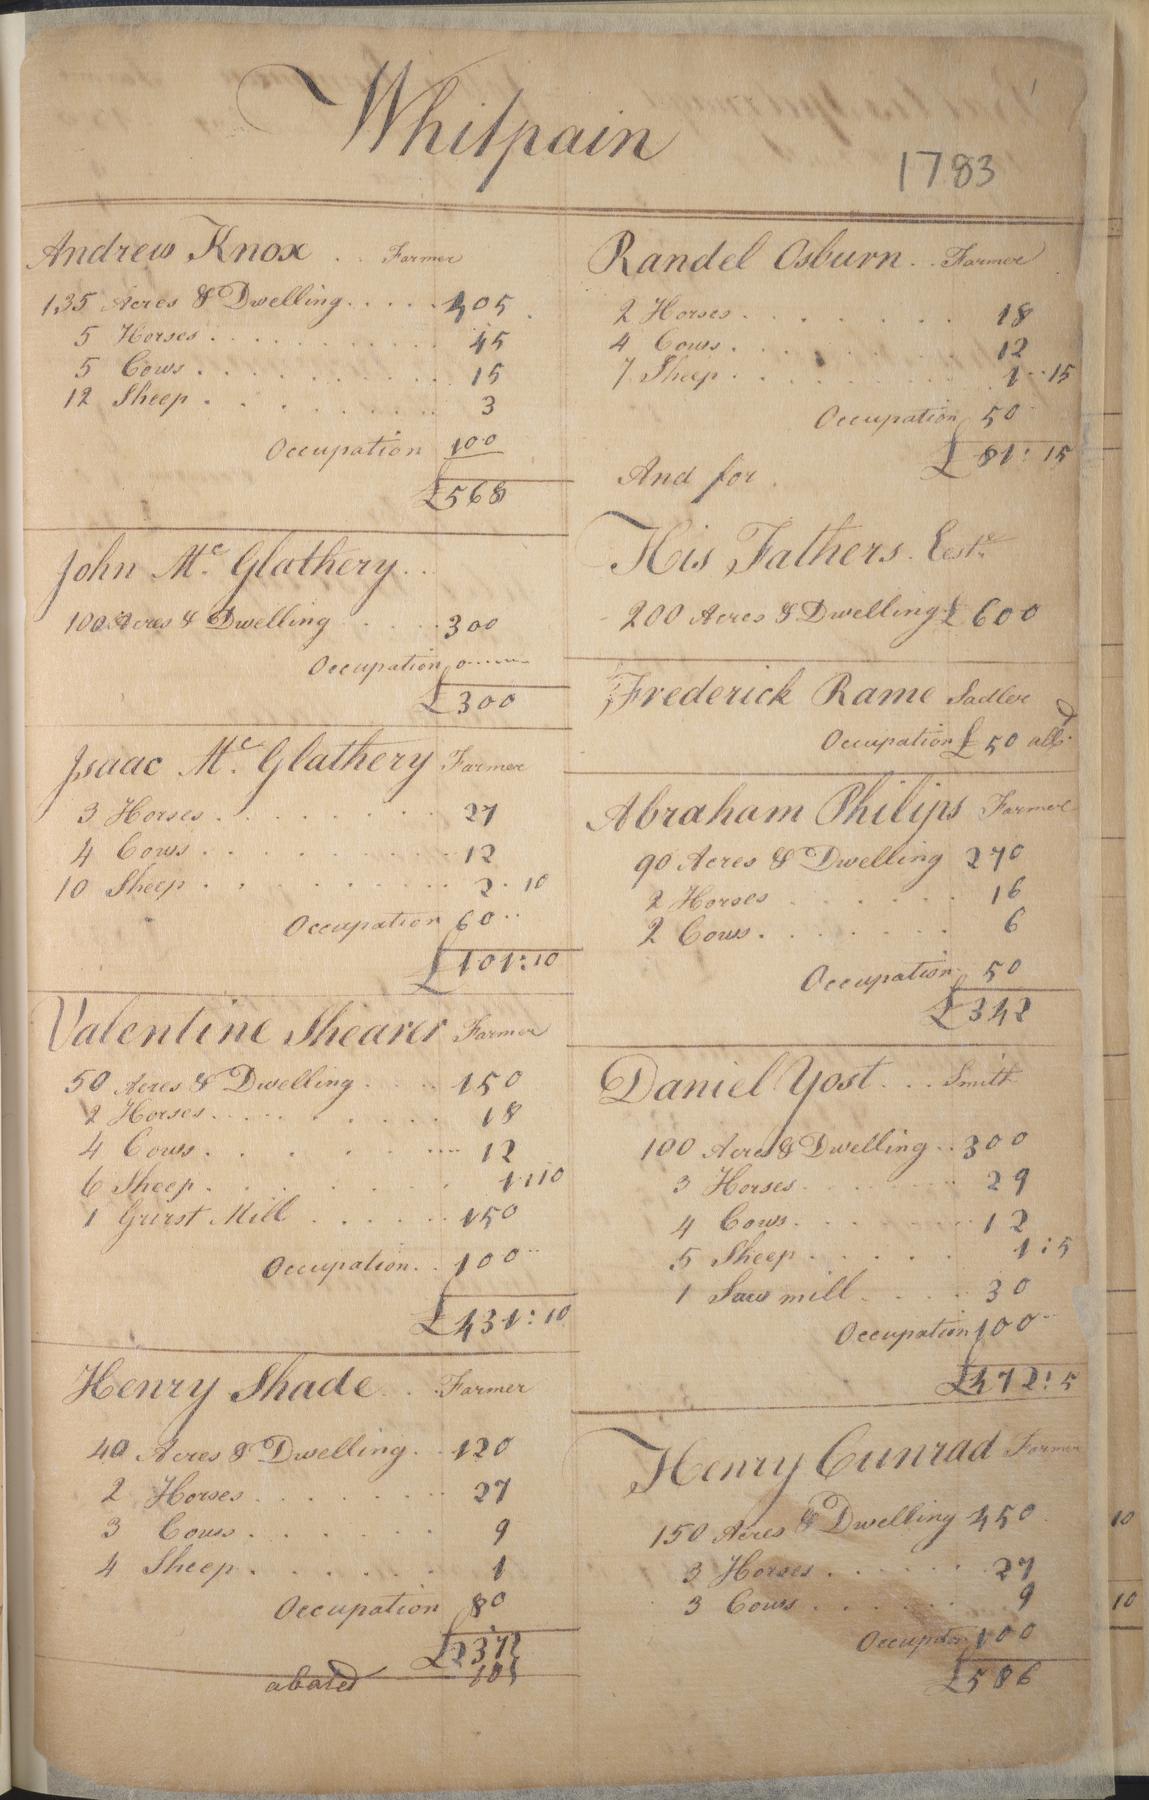 Whitpain
1783
Andrew Knox . . Farmer
135 Acres & Dwelling . . . . 405
5 Horses . . . . 45
5 Cows . . . . 15
12 Sheep . . . . 3
Occupation 100
£568
John Mc. Glathery . .
100 Acres & Dwelling . . . . 300
Occupation 0
£300
Isaac Mc. Glathery Farmer
3 Horses . . . . 27
4 Cows . . . . 12
10 Sheep . . . . 2 . 10
Occupation 60
£101:10
Valentine Shearer Farmer
50 Acres & Dwelling . . . . 150
2 Horses . . . . 18
4 Cows . . . . 12
6 Sheep . . . . 1:10
1 Grirst Mill . . . . 150
Occupation . . 100
£431:10
Henry Shade . . Farmer
40 Acres & Dwelling . . 120
2 Horses . . . . 27
3 Cows . . . . 9
4 Sheep . . . . 1
Occupation 80
abated
Randel Osburn . . Farmer
2 Horses . . . . 18
4 Cows . . . . 12
7 Sheep . . . . 1 . . 15
Occupation 50
£81:15
And for
His Fathers Este
200 Acres & Dwelling £600
Frederick Rame Sadler
Occupation £50
Abraham Philips Farmer
90 Acres & Dwelling 270
2 Horses . . . . 16
2 Cows . . . . 6
Occupation 50
£342
Daniel Yost . . . Smith
100 Acres & Dwelling . . 300
3 Horses . . . . 29
4 Cows . . . . 12
5 Sheep . . . . 1:5
1 Saw mill . . . . 30
Occupation 100
£472:5
Henry Cunrad Farmer
150 Acres & Dwelling 450
3 Horses . . . . 27
3 Cows . . . . 9
Occupation 100
£586
10
10